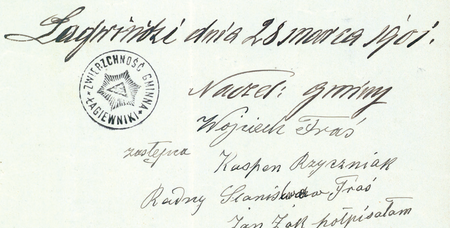 Łagwiński dnia 28 marca 1901.
ZWIERZCHNOŚĆ GMINNA
ŁAGIEWNIKI
Naczel: gminy
Wojciech Fraś
zastępca Kasper Rzyczniak
Radny Stanisław Fraś
Jan Żak półpisałam